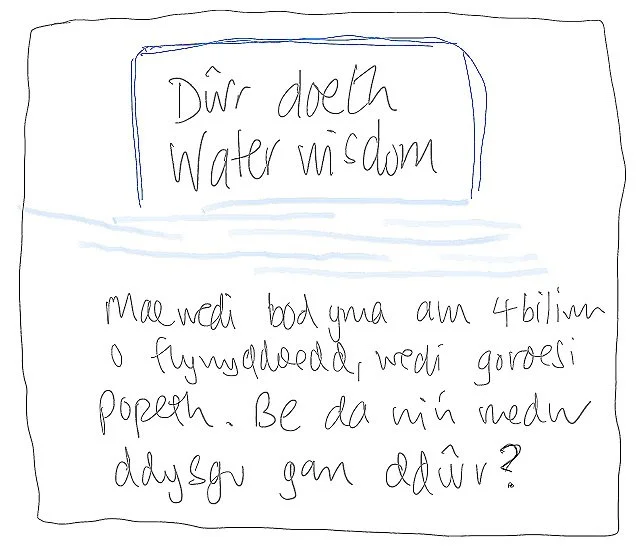 Dŵr doeth
Water wisdom
Mae wedi bod yma am 4 biliwn
o flynyddoedd, wedi goroesi
popeth. Be da ni'n medru
ddysgu gan ddŵr?